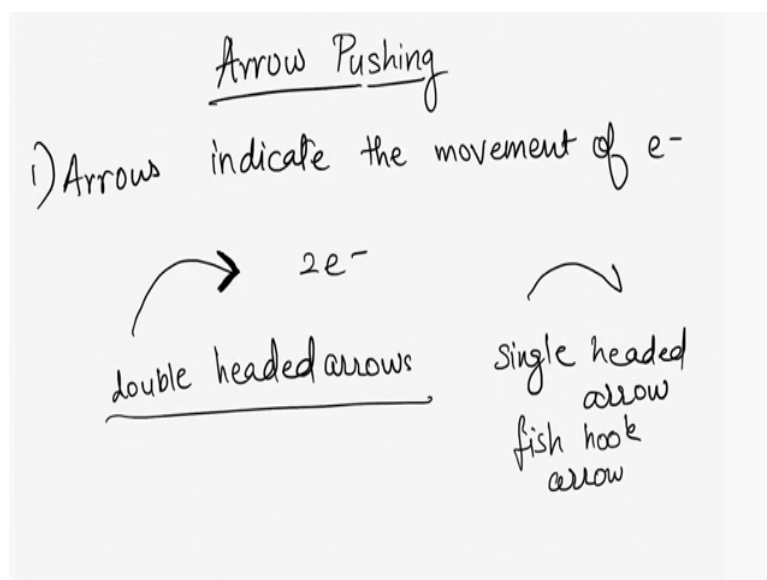 Arrow Pushing
1) Arrows indicate the movement of e-
2e-
double headed arrows
single headed
arrow
fish hook
arrow